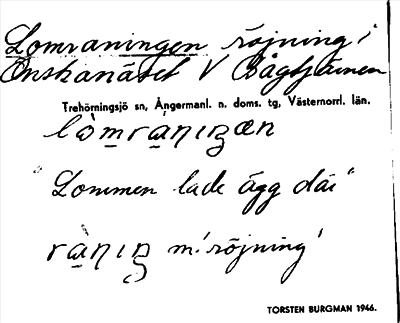 Lomraningen röjning i
Onskanäset V Bågtjärnen
Trehörningsjö sn, Ångermanl. n. doms. tg, Västernorrl. län.
"Lommen lade ägg där"
m. 'röjning'
TORSTEN BURGMAN 1946.